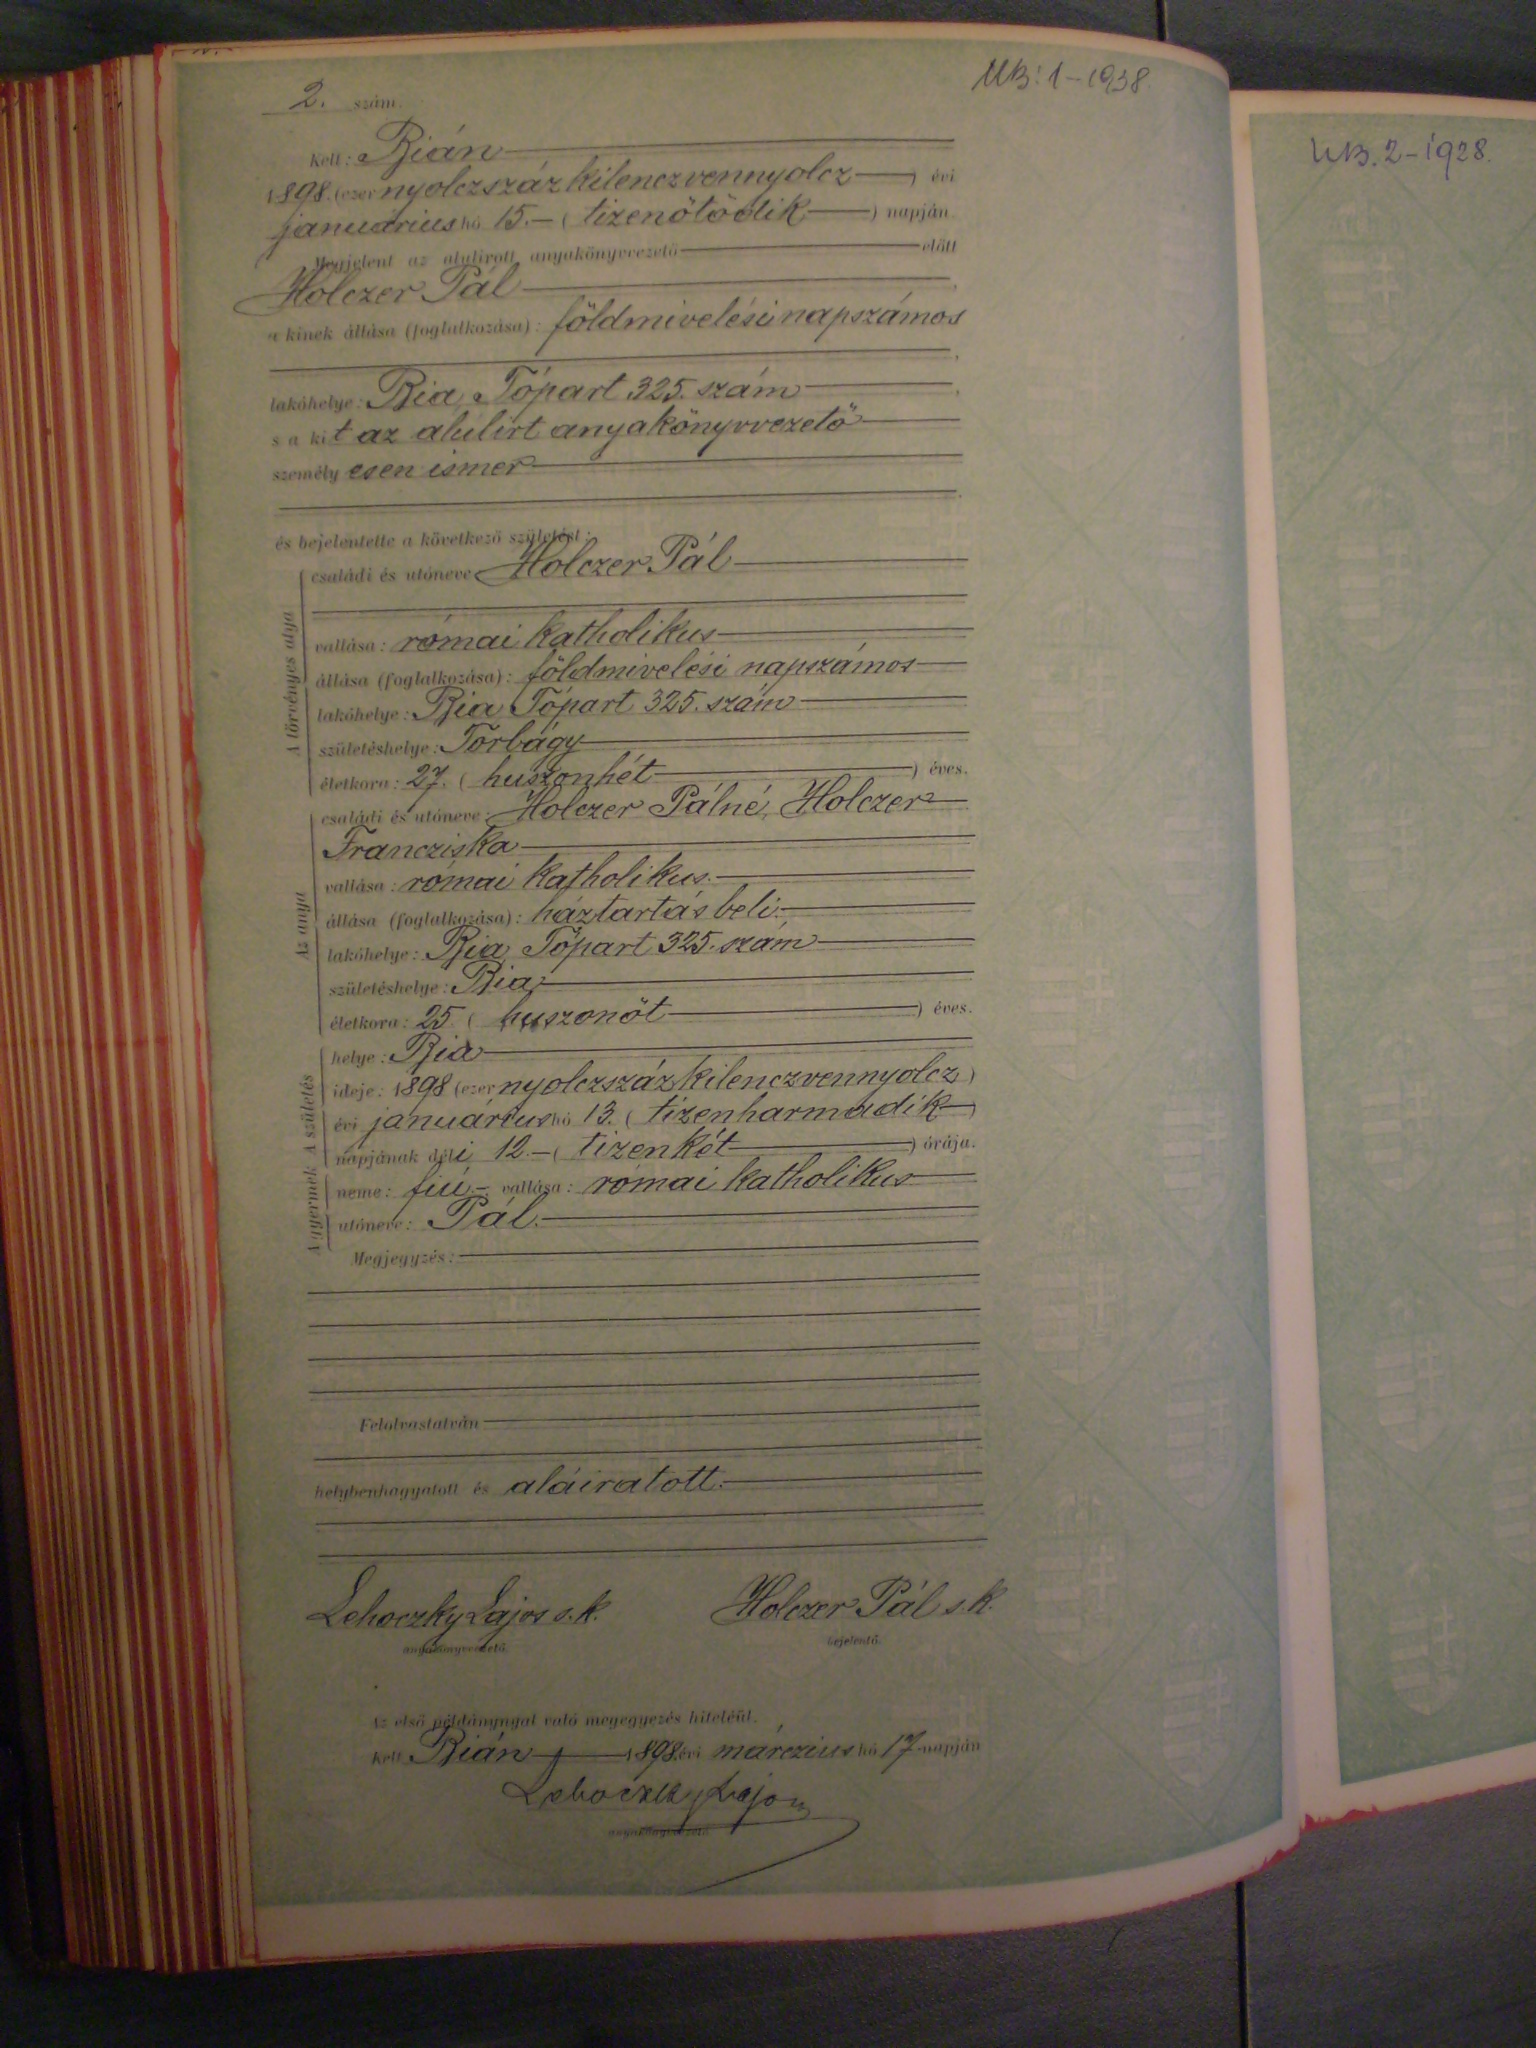 2. szám.
UB: 1-1938.
Kelt: Bián
1898. (ezer nyolczszáz kilenczvennyolcz) évi
januárius hó 15.- (tizenötödik) napján
Megjelent az alulirott anyakönyvvezető előtt
Holczer Pál
a kinek állása (foglalkozása): földmivelési napszámos
lakóhelye: Bia, Tópart 325. szám
s a kit az alulirt anyakönyvvezető
személyesen ismer
és bejelentette a következő születést:
A törvényes atya
családi és utóneve Holczer Pál
vallása: római katholikus
állása (foglalkozása): földmivelési napszámos
lakóhelye: Bia Tópart 325. szám
születéshelye: Torbágy
életkora: 27. (huszonhét) éves.
Az anya
családi és utóneve: Holczer Pálné, Holczer
Francziska
vallása: római katholikus.
állása (foglalkozása): háztartásbeli.
lakóhelye: Bia, Tópart 325. szám
születéshelye: Bia,
életkora: 25. (huszonöt) éves.
A születés
helye: Bia
ideje: 1898 (ezer nyolczszáz kilenczvennyolcz)
évi januárius hó 13. (tizenharmadik)
napjának déli 12.- (tizenkét) órája.
A gyermek
neme: fiú.- vallása: római katholikus
utóneve: Pál.
Megjegyzés:
Felolvastatván
helybenhagyatott és aláiratott.
Lehoczky Lajos s.k.
anyakönyvvezető.
Holczer Pál s.k.
bejelentő.
Az első példánynyal való megegyezés hiteléül.
Kelt Bián 1898. évi márczius hó 17 napján
Lehoczky Lajos
anyakönyvvezető.
UB. 2-1928.